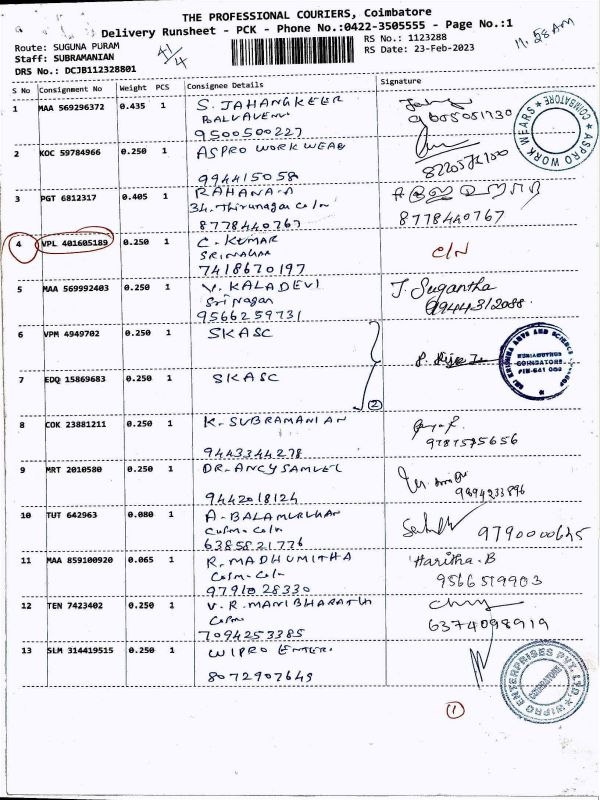 THE PROFESSIONAL COURIERS, Coimbatore
Delivery Runsheet - PCK - Phone No.:0422-3505555 - Page No.:1
Route: SUGUNA PURAM
RS No.: 1123288
11.58 AM
Staff: SUBRAMANIAN
RS Date: 23-Feb-2023
DRS No.: DCJB112328801
41/4
S No Consignment No Weight PCS Consignee Details Signature
1 MAA 569296372 0.435 1 S. JAHANGKEER
9500500227
2 KOC 59784966 0.250 1 ASPRO WORK WEAR
994415058
ASPRO WORK WEARS COIMBATORE
3 PGT 6812317 0.405 1 RAHANA.A
34. Thirunagar coln
8778440767 8778440767
4 VPL 401605189 0.250 1 C. KUMAR
SRINAGAR C/N
7418670197
5 MAA 569992403 0.250 1 V. KALADEVI J. Sugantha
Sri Nagar
9566259731
6 VPM 4949702 0.250 1 SKASC
SRI KRISHNA ARTS AND SCIENCE COLLEGE
KUNIAMUTHUR
COIMBATORE
PIN-641 008
7 EDQ 15869683 0.250 1 SKASC
2
8 COK 23881211 0.250 1 K. SUBRAMANIAN
9443344278
9 MRT 2010580 0.250 1 DR. ANCY SAMUEL
9442018124 9894233896
10 TUT 642963 0.080 1 A. BALAMURUGAN
6385821776 9790000645
11 MAA 859100920 0.065 1 R. MADHUMITHA Haritha.B
9791028330 9566519903
12 TEN 7423402 0.250 1 V.R. MANIBHARATH
7094253385 6374098919
13 SLM 314419515 0.250 1 WIPRO ENTER.
8072907649
WIPRO ENTERPRISES PVT. LTD COIMBATORE
1